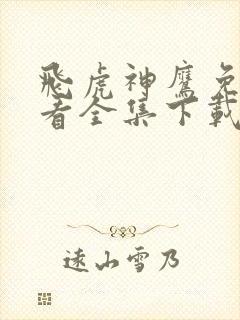 飛虎神鷹免
看全集下載
遠山雪乃